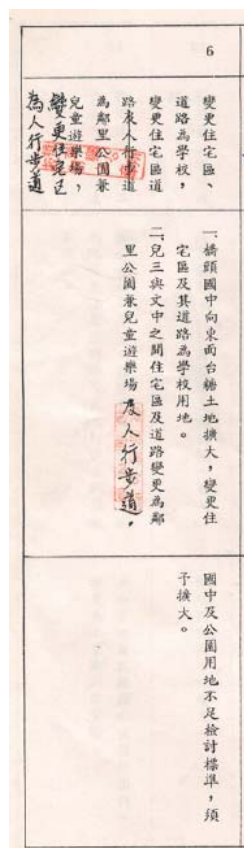 6
變更住宅區、
道路為學校,
變更住宅區道
路及人行步道
為鄰里公園兼
兒童遊樂場,
變更住宅區
為人行步道
一、橋頭國中向東面台糖土地擴大,變更住
宅區及其道路為學校用地。
二、兒三與文中之間住宅區及道路變更為鄰
里公園兼兒童遊樂場及人行步道。
國中及公園用地不足檢討標準,須
予擴大。